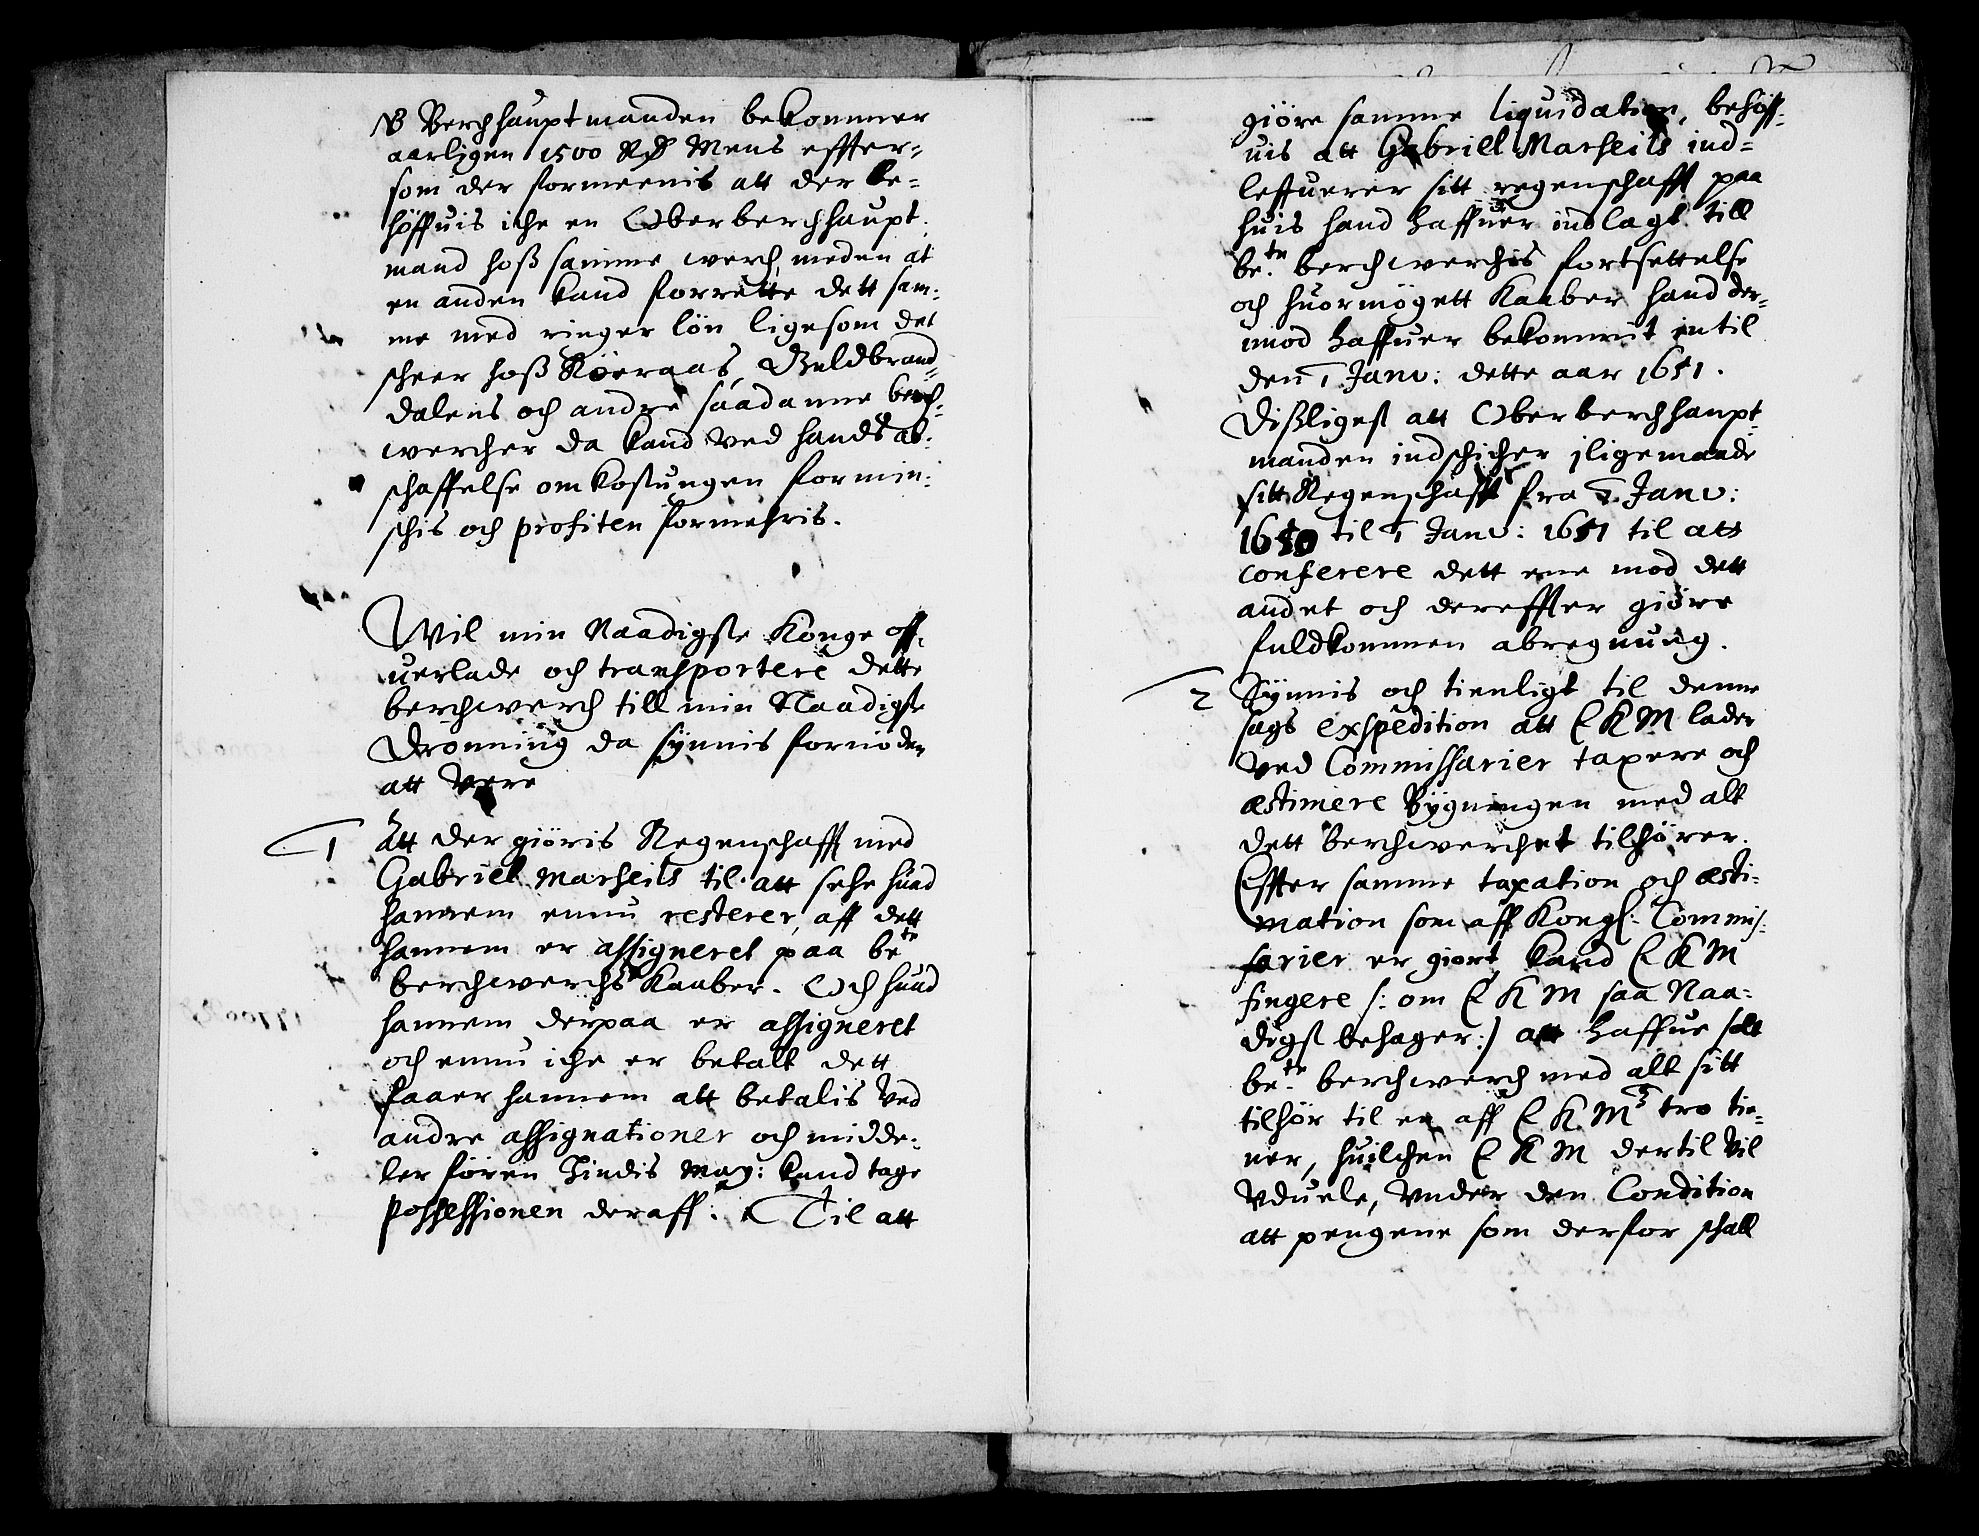 NB Berchhauptmanden bekommer
aarligen 1500 Rdr Mens effter-
som der formeenis att der be-
høffuis iche en Oberberchhaupt
mand hoß samme werch, meden at
en anden kand forrette dett sam-
me med ringer løn ligesom det
scheer hoß Røeraas, Guldbrand-
dalens och andre saadanne berch-
wercher da kand ved hands af-
schaffelse omkostungen formin-
schis och profiten formehris.
Wil min Naadigste Konge off-
uerlade och transportere dette
berchwerch till min Naadigste
Dronning da synnis fornøden
att were
1 Att der giøris Regenschafft med
Gabriel Marseils til att sehe huad
hannem ennu resterer, aff dett
hannem er assigneret paa be.te
berchwerchs Kaaber. Och huad
hannem derpaa er assigneret
och ennu iche er betalt dett
faaer hannem att betalis ved
andre assignationer och midde-
ler føren Hindis May: kand tage
Possessionen deraff. Til att
giøre samme liquidation, behøff-
uis att Gabriell Marseils ind-
leffuerer sitt regenschafft paa
huis hand haffuer indlagt till
be.te berchwerchis fortsettelse
och huormøgett Kaaber hand der-
imod haffuer bekommit intil
den 1 Janv: dette aar 1651.
Dißligest att Oberberchhaupt-
manden indschicher iligemaade
sitt Regenschafft fra 1. Janv:
1650 til 1 Janv: 1651 til att
conferere dett ene mod dett
andet och dereffter giøre
fuldkommen abregnung.
2 Synnis och tienligt til denne
sags expedition att E K M lader
ved Commissarier taxere och
æstimere Bygningen med alt
dett berchwerchet tilhører.
Effter samme taxation och æsti-
mation som aff Kongl: Commis-
sarier er giort kand E K M
fingere /: om E K M saa Naa-
digst behager :/ att haffue solt
be.te berchwerch med alt sitt
tilhør til en aff E K M.s tro tie-
ner, huilchen E K M dertil vil
vduele, vnder den Condition
att pengene som derfor schall